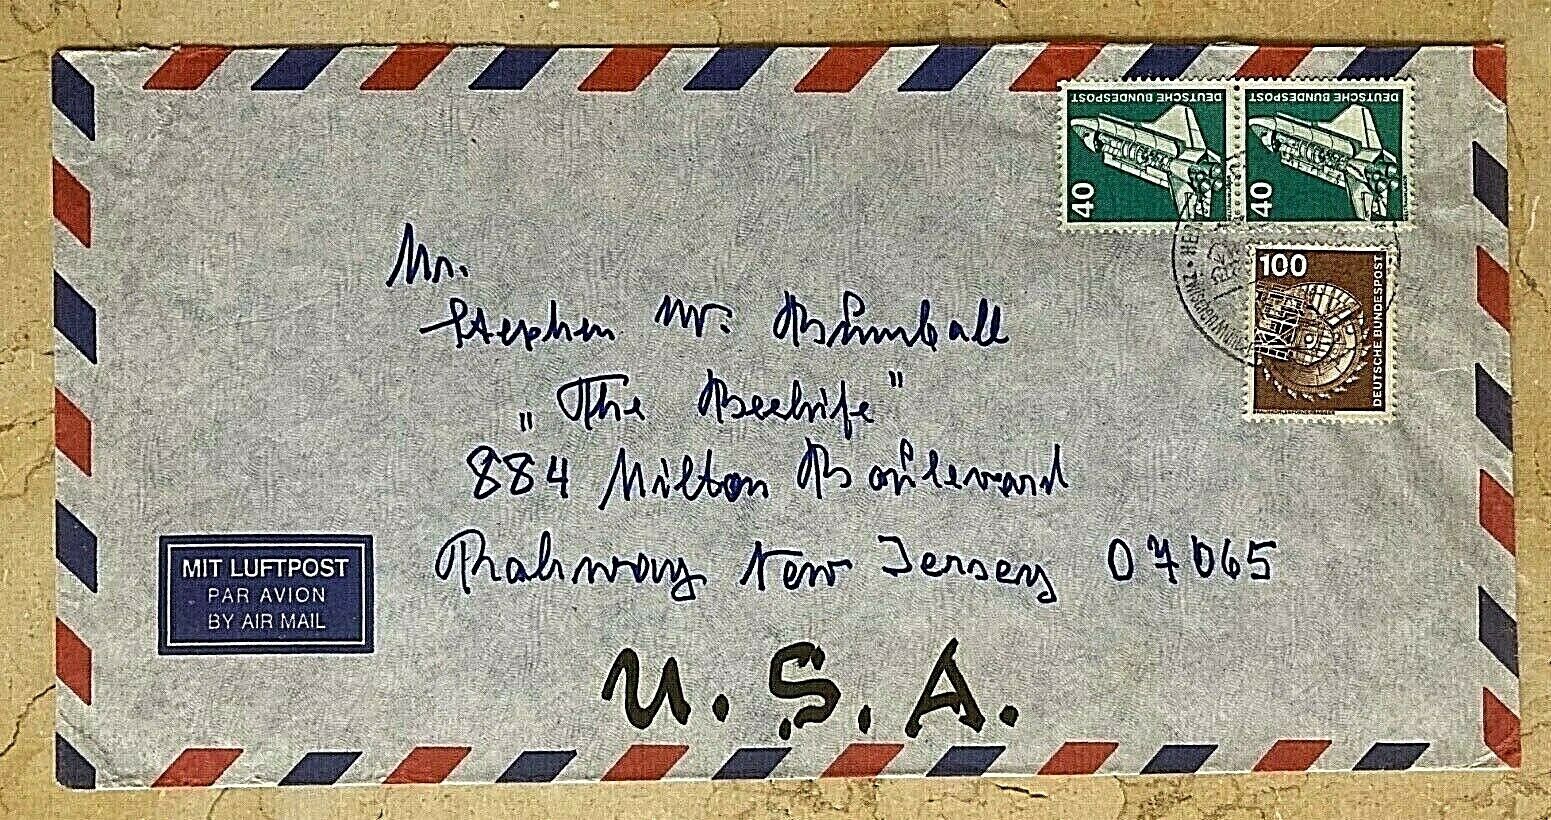 DEUTSCHE BUNDESPOST
40
DEUTSCHE BUNDESPOST
40
100
DEUTSCHE BUNDESPOST
Mr.
Stephen W. Bumball
„The Beehife"
884 Milton Boulevard
Rahway New Jersey 07065
U.S.A.
MIT LUFTPOST
PAR AVION
BY AIR MAIL